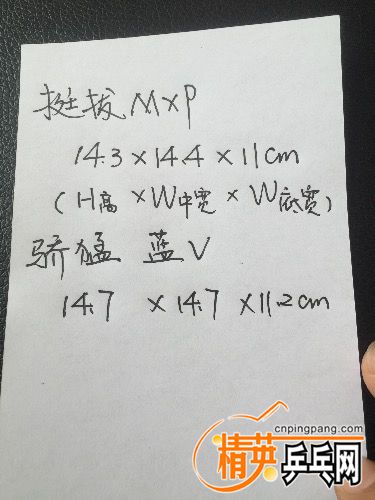 挺拔 MXP
14.3 × 14.4 × 11cm
(H高 × W中宽 × W底宽)
骄猛 蓝V
14.7 × 14.7 × 11.2cm
cnpingpang.com
精英乒乓网